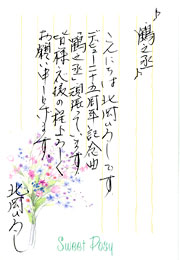 ♪鶴之丞♪
こんにちは北岡ひろしです
デビュー二十五周年記念曲
「鶴之丞」頑張っています
皆様、応援の程よろしく
お願い申し上げます
北岡ひろし
Sweet Posy